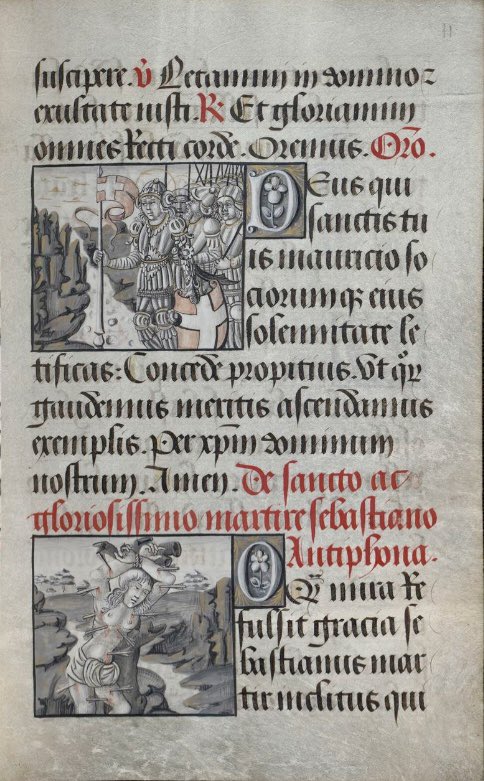 11
suscipere. V Letamini in domino
exultate iusti. R Et gloriamini
omnes Recti corde. Oremus. Oro.
Deus qui
sanctis tu
is mauricio so
ciorumq eius
solennitate le
tificas: Concede propitius. Ut qr
gaudemus meritis ascendamus
exemplis. Per xpm dominum
nostrum. Amen. De sancto ac
gloriosissimo martire sebastiano
Antiphona.
O Qm mira Re
fulsit gracia se
bastianus mar
tir inclitus qui